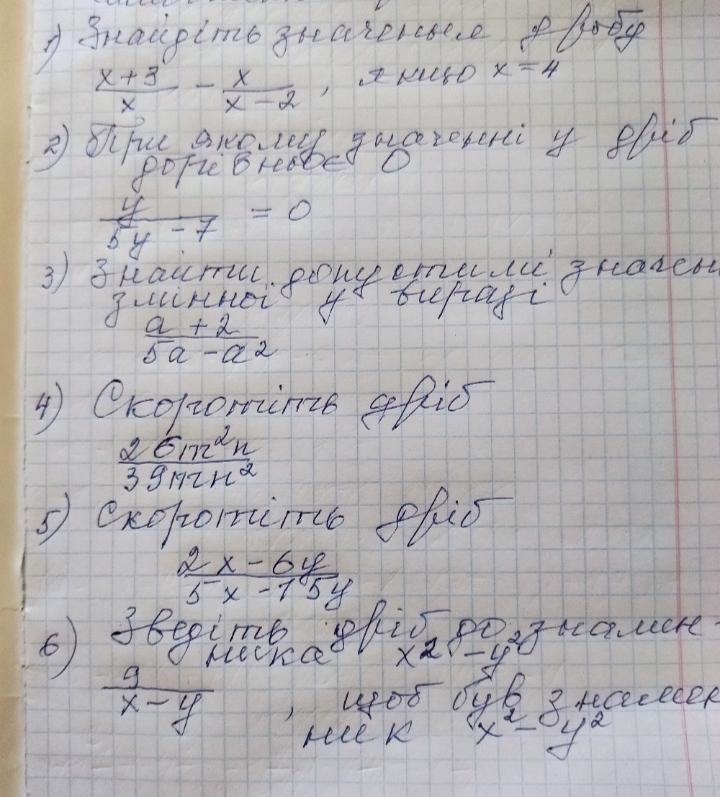 1) Знайдіть значення дробу
x+3/x - x/x-2, якщо x=4
2) При якому значенні y дріб
дорівнює 0
y/5y-7 = 0
3) Знайти допустимі значен
змінної у виразі
a+2/5a-a2
4) Скоротіть дріб
26m²n/39mn²
5) Скоротіть дріб
2x-6y/5x-15y
6) Зведіть дріб до знамен-
ника x2-y²
9/x-y, щоб був знамен
ник x²-y²